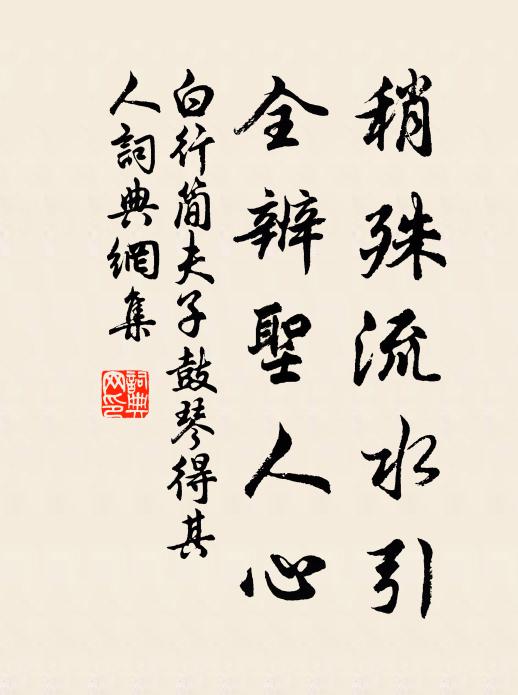 稍殊流水引
全辨聖人心
白行简夫子鼓琴得其
人詞典網集
詞典
网印